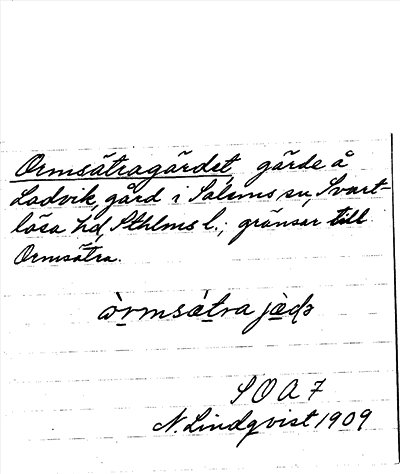 Ormsätragärdet, gärde å
Ladvik, gård i Salems sn, Svart-
lösa hd, Sthlms l.; gränsar till
Ormsätra.
SOA 7
N. Lindqvist 1909